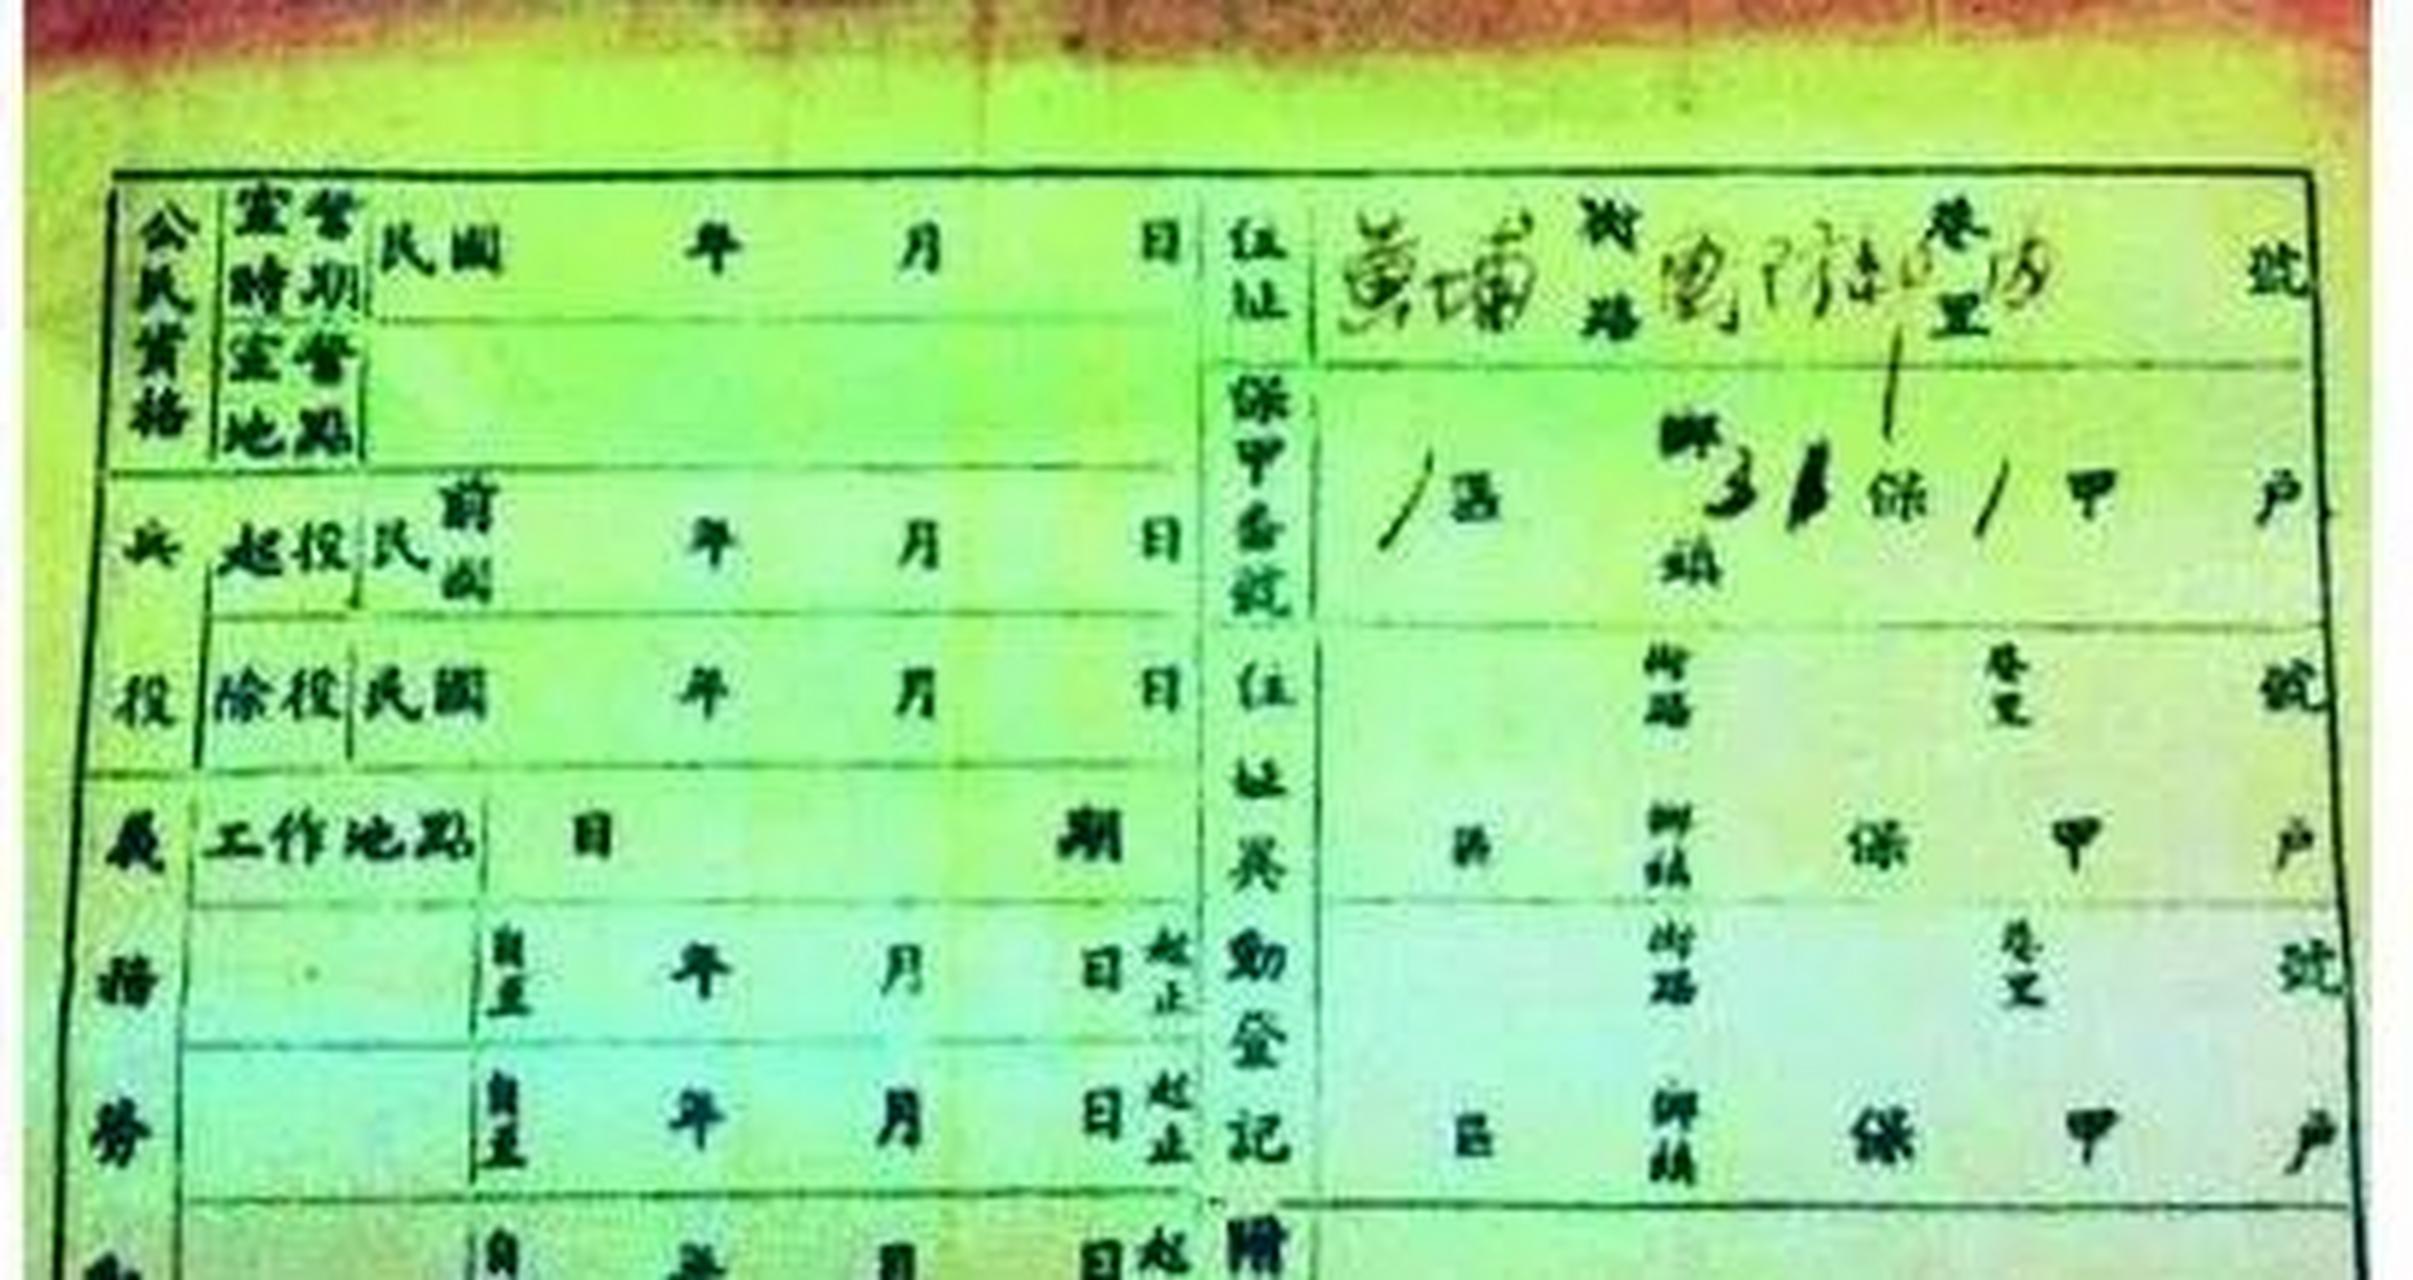 公民資格
宣誓時期
民國 年 月 日
宣誓地點
兵役
起役
民前國 年 月 日
除役
民國 年 月 日
義務勞動
工作地點
日期
自至 年 月 日 起止
自至 年 月 日 起止
自 年 月 日 起
住址
黃埔 街路 巷里 內 號
保甲番號
1 區 鄉鎮 31 保 1 甲 戶
住址異動登記
街路 巷里 號
區 鄉鎮 保 甲 戶
街路 巷里 號
區 鄉鎮 保 甲 戶
附